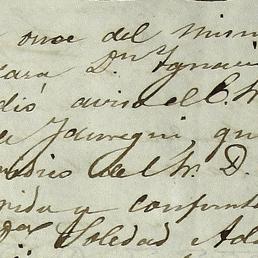 once del mism
cara Dn Ignaci
dió aviso el C. W
a Jauregui, qu
del W. D.
rida y confront
Soledad Ada